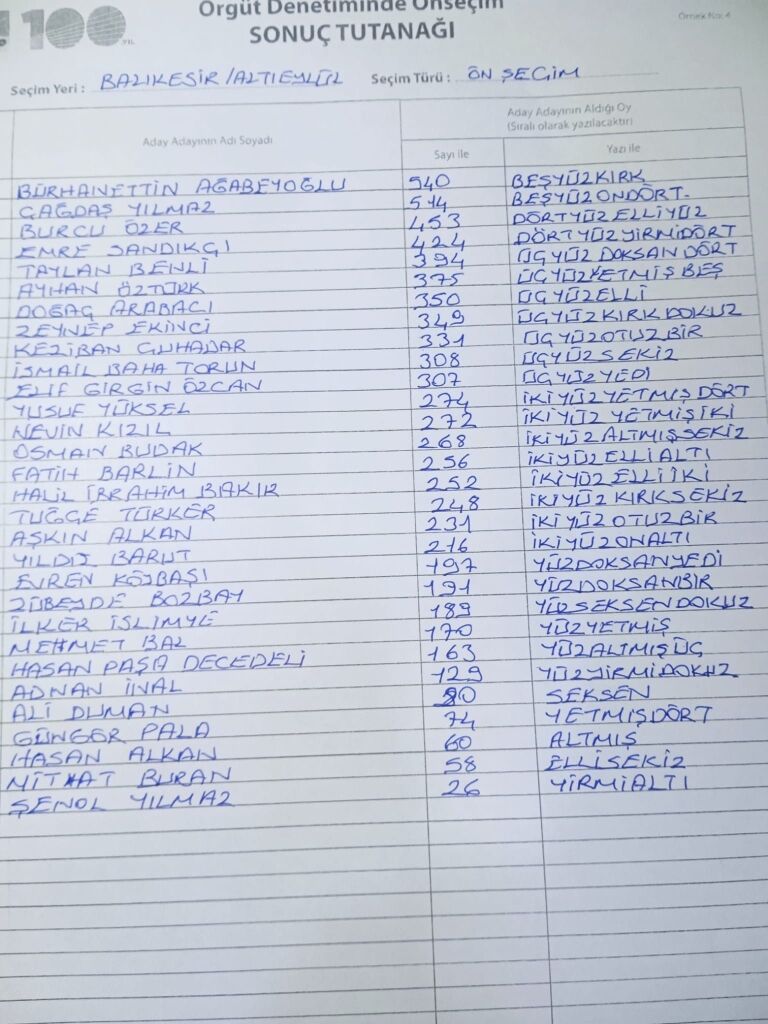 Örgüt Denetiminde Önseçim
100. YIL
SONUÇ TUTANAĞI
Örnek No: 4
Seçim Yeri : BALIKESİR/ALTIEYLÜL Seçim Türü : ÖN SEÇİM
Aday Adayının Adı Soyadı
Aday Adayının Aldığı Oy
(Sıralı olarak yazılacaktır)
Sayı ile Yazı ile
BURHANETTİN AĞABEYOĞLU 540 BEŞYÜZKIRK
ÇAĞDAŞ YILMAZ 514 BEŞYÜZONDÖRT
BURCU ÖZER 453 DÖRTYÜZELLİYÜZ
EMRE SANDIKÇI 424 DÖRTYÜZYİRMİDÖRT
TAYLAN BENLİ 394 ÜÇYÜZ DOKSAN DÖRT
AYHAN ÖZTÜRK 375 ÜÇYÜZYETMİŞ BEŞ
DOĞAÇ ARABACI 350 ÜÇYÜZELLİ
ZEYNEP EKİNCİ 349 ÜÇYÜZKIRK DOKUZ
KEZİBAN ÇUHADAR 331 ÜÇYÜZOTUZ BİR
İSMAİL BAHA TORUN 308 ÜÇYÜZSEKİZ
ELİF GİRGİN ÖZCAN 307 ÜÇYÜZYEDİ
YUSUF YÜKSEL 274 İKİYÜZ YETMİŞ DÖRT
NEVİN KIZIL 272 İKİYÜZ YETMİŞİKİ
OSMAN BUDAK 268 İKİYÜZ ALTMIŞSEKİZ
FATİH BARLIN 256 İKİYÜZELLİALTI
HALİL İBRAHİM BAKIR 252 İKİYÜZ ELLİİKİ
TUĞÇE TÜRKER 248 İKİYÜZ KIRKSEKİZ
AŞKIN ALKAN 231 İKİYÜZ OTUZBİR
YILDIZ BARUT 216 İKİYÜZ ONALTI
EVREN KÖYBAŞI 197 YÜZDOKSANYEDİ
ZÜBEYDE BOZBAY 191 YÜZDOKSANBİR
İLKER İSLİMYE 189 YÜZSEKSENDOKUZ
MEHMET BAL 170 YÜZYETMİŞ
HASAN PAŞA DECEDELİ 163 YÜZALTMIŞÜÇ
ADNAN İNAL 129 YÜZYİRMİDOKUZ
ALİ DUMAN 80 SEKSEN
GÜNGÖR PALA 74 YETMİŞDÖRT
HASAN ALKAN 60 ALTMIŞ
MİTHAT BURAN 58 ELLİSEKİZ
ŞENOL YILMAZ 26 YİRMİALTI